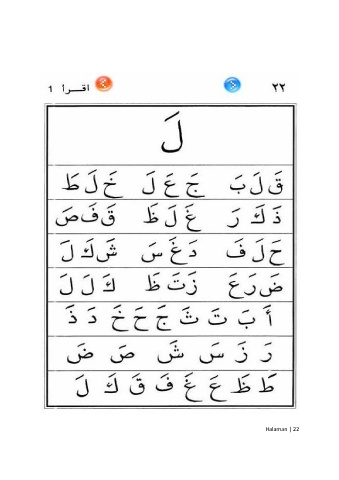 ٢٢ اقـــرأ 1
لَ
قَ لَ بَ جَ عَ لَ خَ لَ طَ
ذَ كَ رَ غَ لَ ظَ قَ فَ صَ
حَ لَ فَ دَ غَ سَ شَ كَ لَ
ضَ رَ عَ زَ تَ ظَ كَ لَ لَ
أَ بَ تَ ثَ جَ حَ خَ دَ ذَ
رَ زَ سَ شَ صَ ضَ
طَ ظَ عَ غَ فَ قَ كَ لَ
Halaman | 22